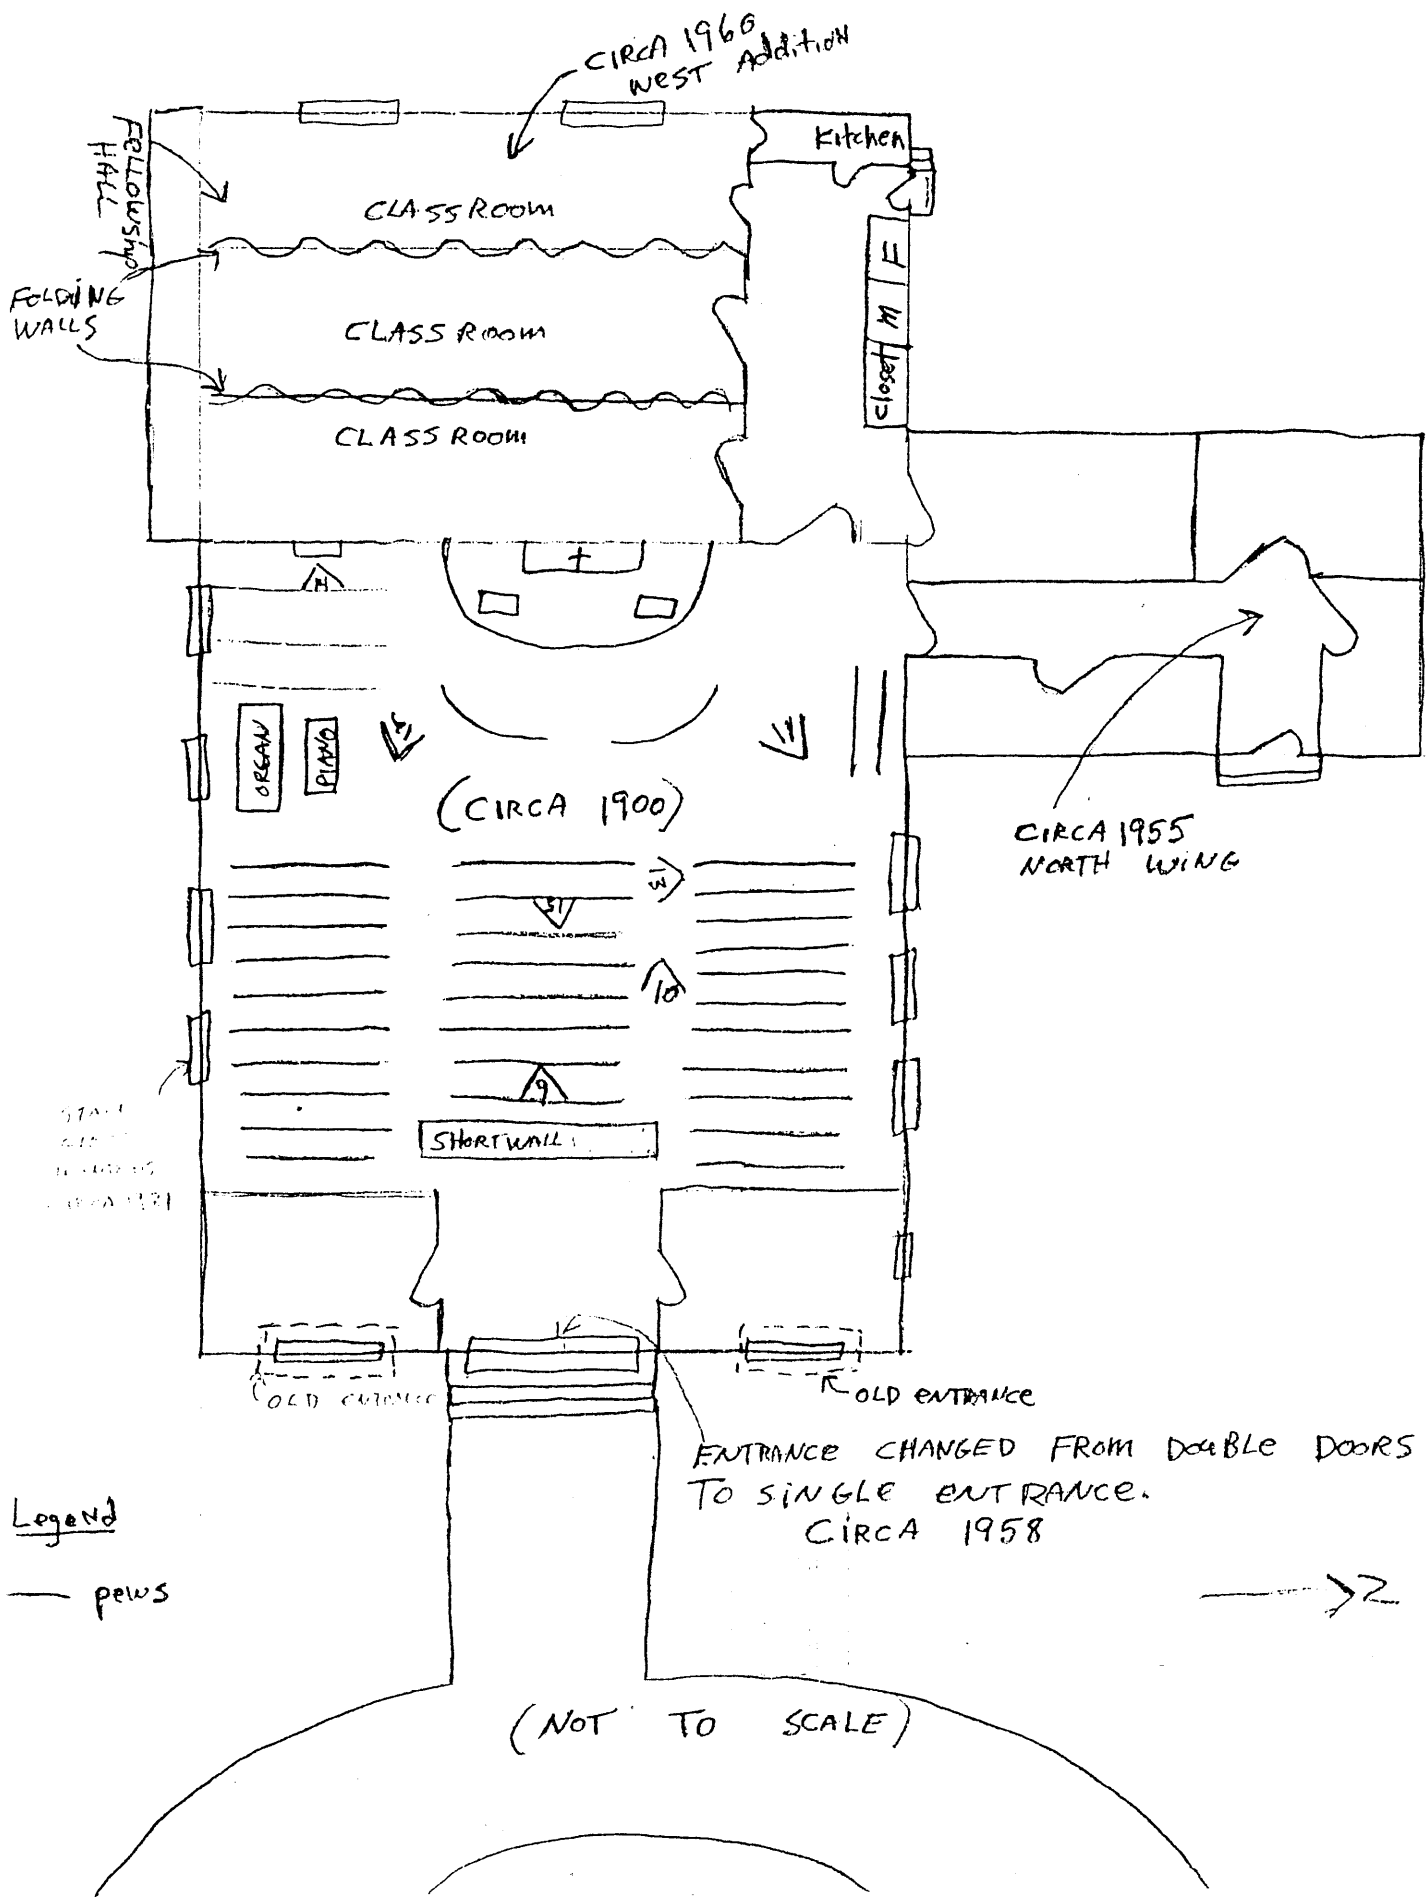 CIRCA 1960
WEST Addition
Kitchen
FELLOWSHIP
HALL
CLASSROOM
F
FOLDING
WALLS
CLASSROOM
M
closet
CLASSROOM
ORGAN
PIANO
11
(CIRCA 1900)
CIRCA 1955
NORTH WING
13
15
10
9
SHORT WALL
OLD ENTRANCE
OLD ENTRANCE
ENTRANCE CHANGED FROM DOUBLE DOORS
TO SINGLE ENTRANCE.
CIRCA 1958
Legend
pews
N
(NOT TO SCALE)